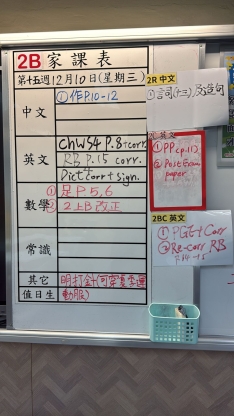 2B 家課表
第十五週12月10日(星期三)
中文
①作P.10-12
英文
Chw S4 P.8+corr.
RB P.15 corr.
Dict corr + sign.
數學
①足P5,6
②2上B改正
常識
其它
明打針(可穿夏季運
值日生
動服)
2R 中文
①詞(十三)及造句
英文
①PP(p.11)
②Post Exam
paper
2BC 英文
①PGE+Corr
②Re-corr RB
P.14-15